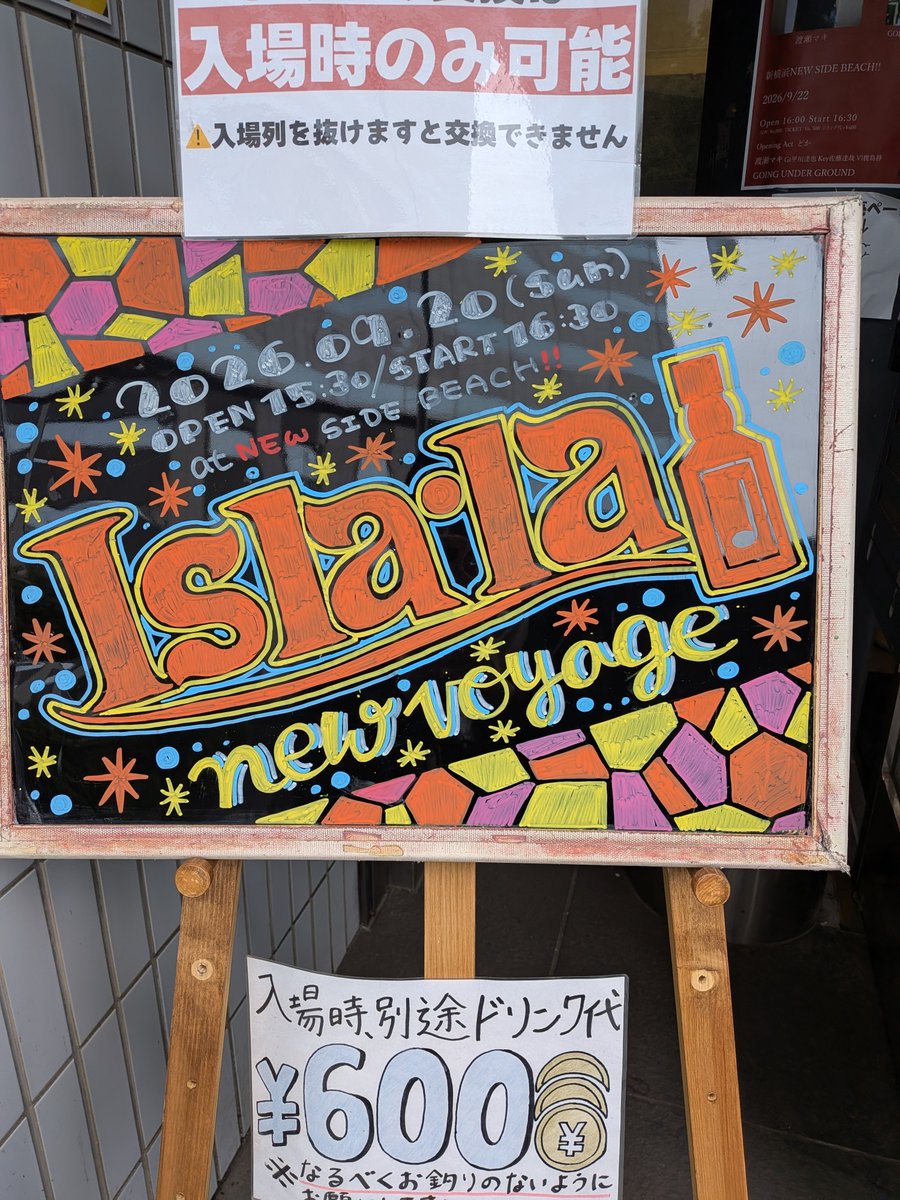 入場時のみ可能
⚠入場列を抜けますと交換できません
渡瀬マキ
新横浜NEW SIDE BEACH!!
2026/9/22
Open 16:00 Start 16:30
Opening Act どか
GOING UNDER GROUND
2026.09.20(Sun)
OPEN 15:30/START 16:30
at NEW SIDE BEACH!!
Isla・la
new voyage
入場時、別途ドリンク代
¥600
¥
※なるべくお釣りのないように